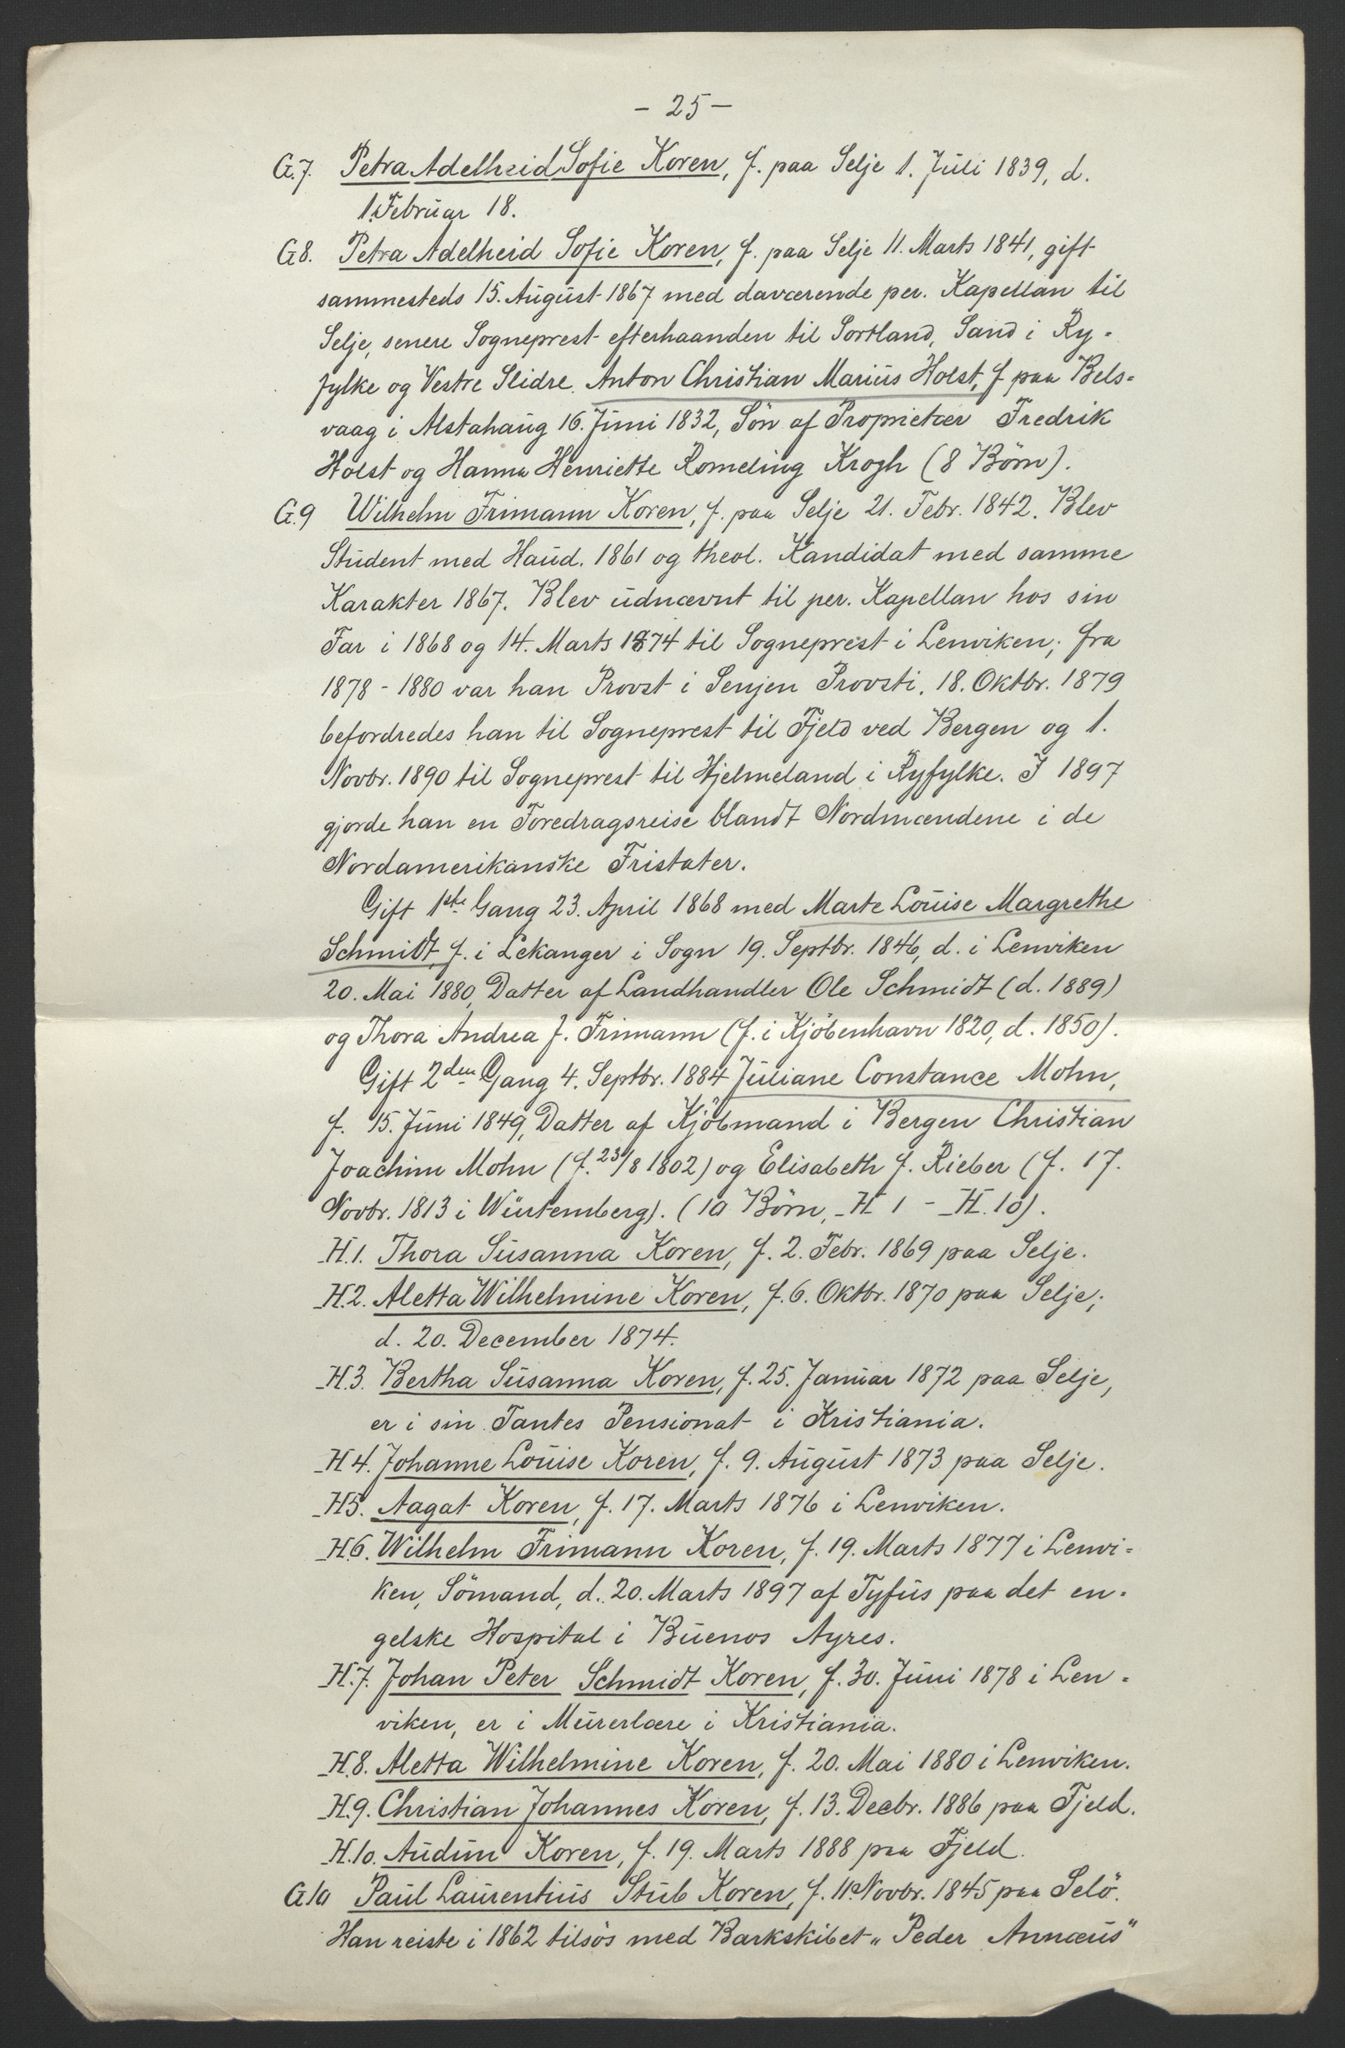 - 25 -
G.7. Petra Adelheid Sofie Koren, f. paa Selje 1. Juli 1839, d.
1. Februar 18.
G8. Petra Adelheid Sofie Koren, f. paa Selje 11. Marts 1841, gift
sammesteds 15. August 1867 med daværende per. Kapellan til
Selje, senere Sogneprest efterhaanden til Sortland, Sand i Ry-
fylke og Vestre Slidre. Anton Christian Marius Holst, f paa Bels-
vaag i Alstahaug 16. Juni 1832, Søn af Proprietær Fredrik
Holst og Hanna Henriette Romeling Krogh (8 Børn).
G.9 Wilhelm Frimann Koren, f. paa Selje 21. Febr. 1842. Blev
Student med Haud. 1861 og theol. Kandidat med samme
Karakter 1867. Blev udnævnt til per. Kapellan hos sin
Far i 1868 og 14. Marts 1874 til Sogneprest i Lenviken; fra
1878 - 1880 var han Provst i Senjen Provsti. 18. Oktbr. 1879
befordredes han til Sogneprest til Fjeld ved Bergen og 1.
Novbr. 1890 til Sogneprest til Hjelmeland i Ryfylke. I 1897
gjorde han en Foredragsreise blandt Nordmændene i de
Nordamerikanske Fristater.
Gift 1ste Gang 23. April 1868 med Marte Louise Margrethe
Schmidt, f. i Lekanger i Sogn 19. Septbr. 1846, d. i Lenviken
20. Mai 1880, Datter af Landhandler Ole Schmidt (d. 1889)
og Thora Andrea f. Frimann (f. i Kjöbenhavn 1820, d. 1850).
Gift 2den Gang 4. Septbr. 1884 Juliane Constance Mohn,
f. 15. Juni 1849, Datter af Kjöbmand i Bergen Christian
Joachim Mohn (f. 23/8 1802) og Elisabeth f. Rieber (f. 17.
Novbr. 1813 i Würtemberg). (10 Börn, H 1 - H. 10).
H.1. Thora Susanna Koren, f. 2. Febr. 1869 paa Selje.
H.2. Aletta Wilhelmine Koren, f. 6. Oktbr. 1870 paa Selje;
d. 20. December 1874.
H.3. Bertha Susanna Koren, f. 25. Januar 1872 paa Selje,
er i sin Tantes Pensionat i Kristiania.
H4. Johanne Louise Koren, f. 9. August 1873 paa Selje.
H5. Aagat Koren, f. 17. Marts 1876 i Lenviken.
H.6. Wilhelm Frimann Koren, f. 19. Marts 1877 i Lenvi-
ken, Sömand, d. 20. Marts 1897 af Tyfus paa det en-
gelske Hospital i Buenos Ayres.
H.7. Johan Peter Schmidt Koren, f. 30. Juni 1878 i Len-
viken, er i Murerlære i Kristiania.
H.8. Aletta Wilhelmine Koren, f. 20. Mai 1880 i Lenviken.
H.9. Christian Johannes Koren, f. 13. Decbr. 1886 paa Fjeld.
H.10. Audun Koren, f. 19. Marts 1888 paa Fjeld.
G.10 Paul Laurentius Stub Koren, f. 11. Novbr. 1845 paa Selö.
Han reiste i 1862 tilsös med Barkskibet „Peder Annæus"